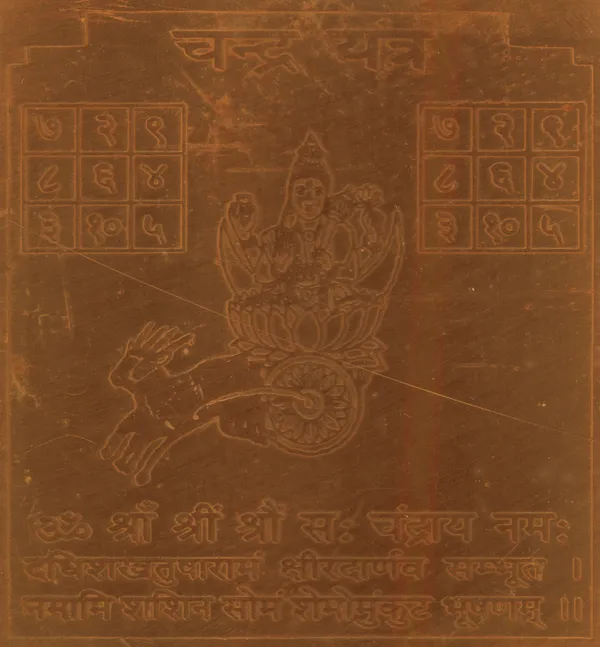 चन्द्र यंत्र
७ २ ९ ७ २ ९
८ ६ ४ ८ ६ ४
३ १० ५ ३ १० ५
ॐ श्राँ श्रीं श्रौं सः चंद्राय नमः
दधिशखतुषारामं क्षीरदार्णव सम्भूतं ।
नमामि शशिन सोमं शेमोमुंकुट भूषणंम् ॥